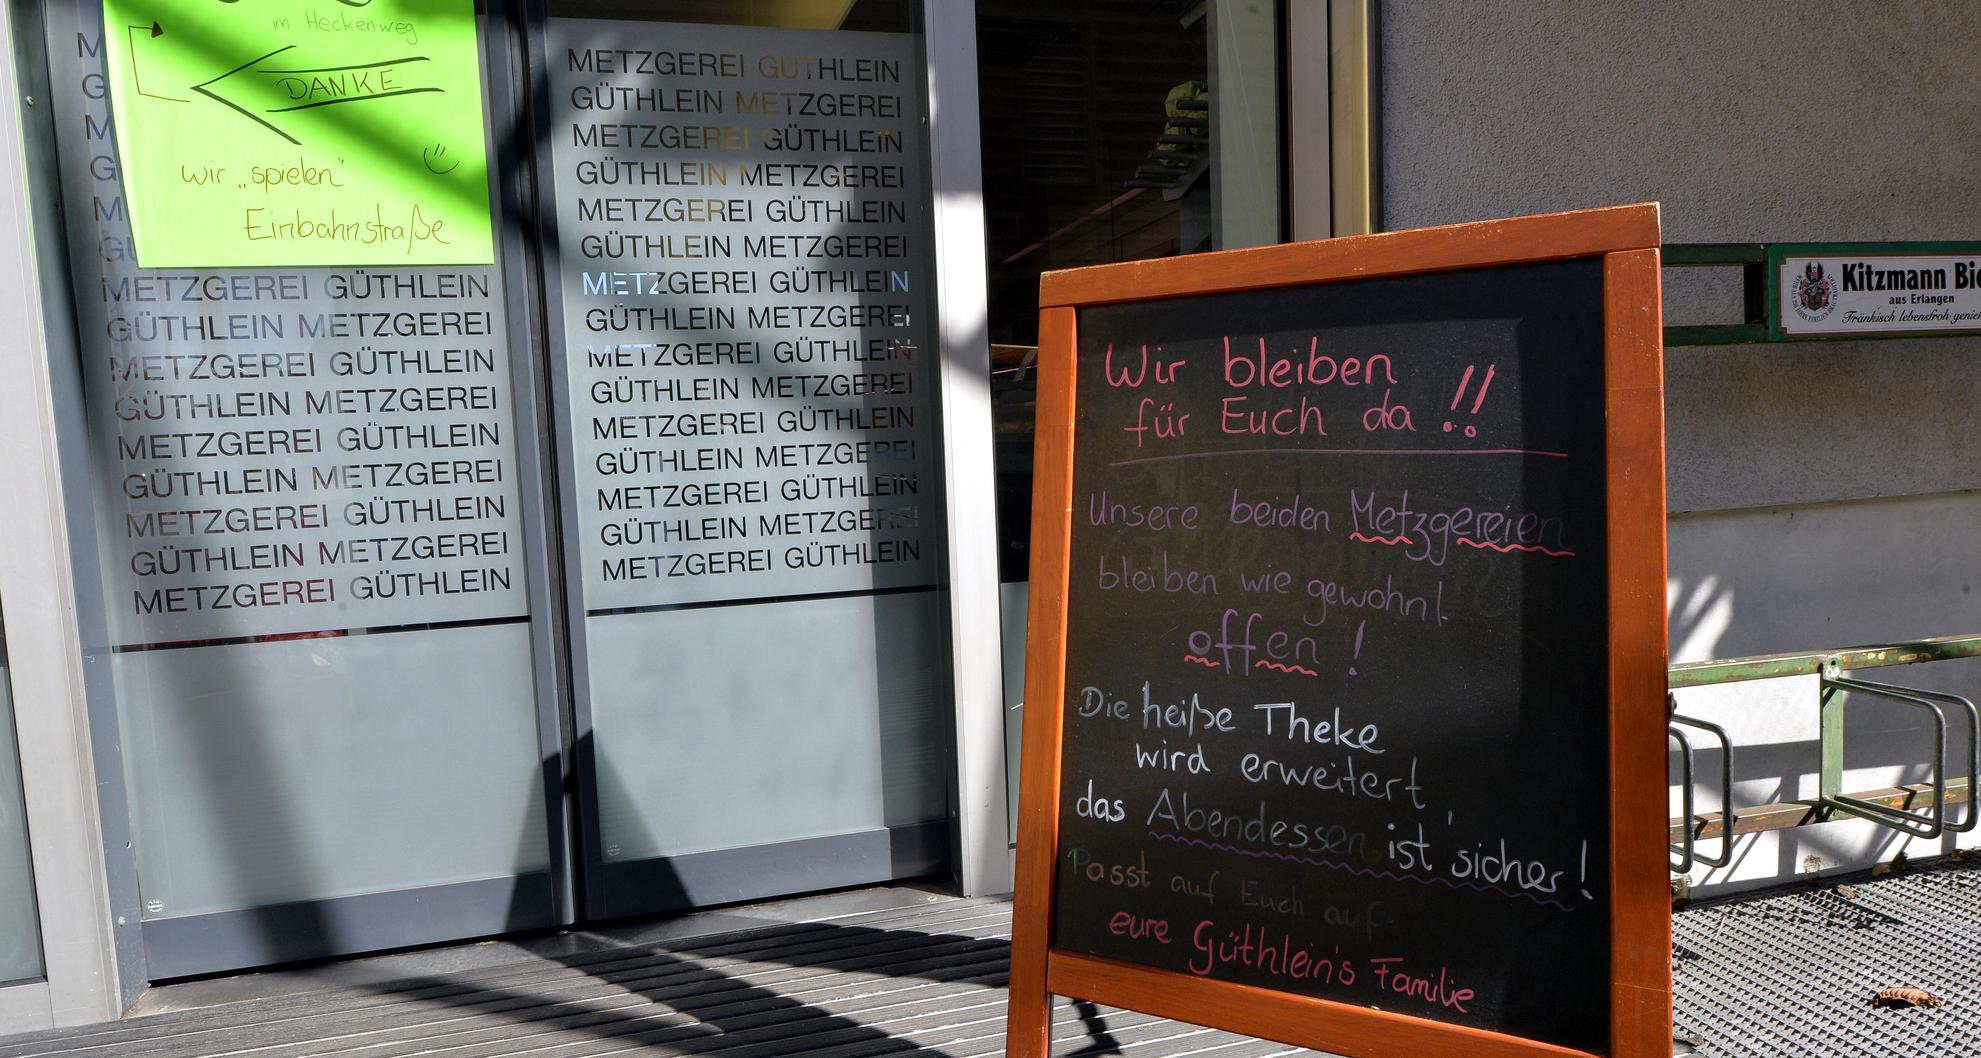 im Heckenweg
DANKE
wir „spielen"
Einbahnstraße
METZGEREI GÜTHLEIN
GÜTHLEIN METZGEREI
METZGEREI GÜTHLEIN
GÜTHLEIN METZGEREI
METZGEREI GÜTHLEIN
GÜTHLEIN METZGEREI
METZGEREI GÜTHLEIN
GÜTHLEIN METZGEREI
METZGEREI GÜTHLEIN
METZGEREI GÜTHLEIN
GÜTHLEIN METZGEREI
METZGEREI GÜTHLEIN
GÜTHLEIN METZGEREI
METZGEREI GÜTHLEIN
GÜTHLEIN METZGEREI
METZGEREI GÜTHLEIN
GÜTHLEIN METZGEREI
METZGEREI GÜTHLEIN
GÜTHLEIN METZGEREI
METZGEREI GÜTHLEIN
GÜTHLEIN METZGEREI
METZGEREI GÜTHLEIN
GÜTHLEIN METZGEREI
METZGEREI GÜTHLEIN
Wir bleiben
für Euch da !!
Unsere beiden Metzgereien
bleiben wie gewohnl.
offen !
Die heiße Theke
wird erweitert,
das Abendessen ist sicher!
Passt auf Euch auf-
eure Güthlein's Familie
Kitzmann Bie
aus Erlangen
Fränkisch lebensfroh genie